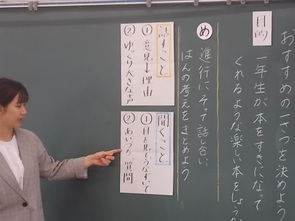 目的
おすすめの一さつを決めよう
一年生が、本をすきになって
くれるような楽しい本をしょうか
め
進行にそって話し合い
はんの考えをまとめよう
話すこと
① 意見→理由
② ゆっくり大きな声
聞くこと
① 目を見てうなずいて
② あいづち、質問